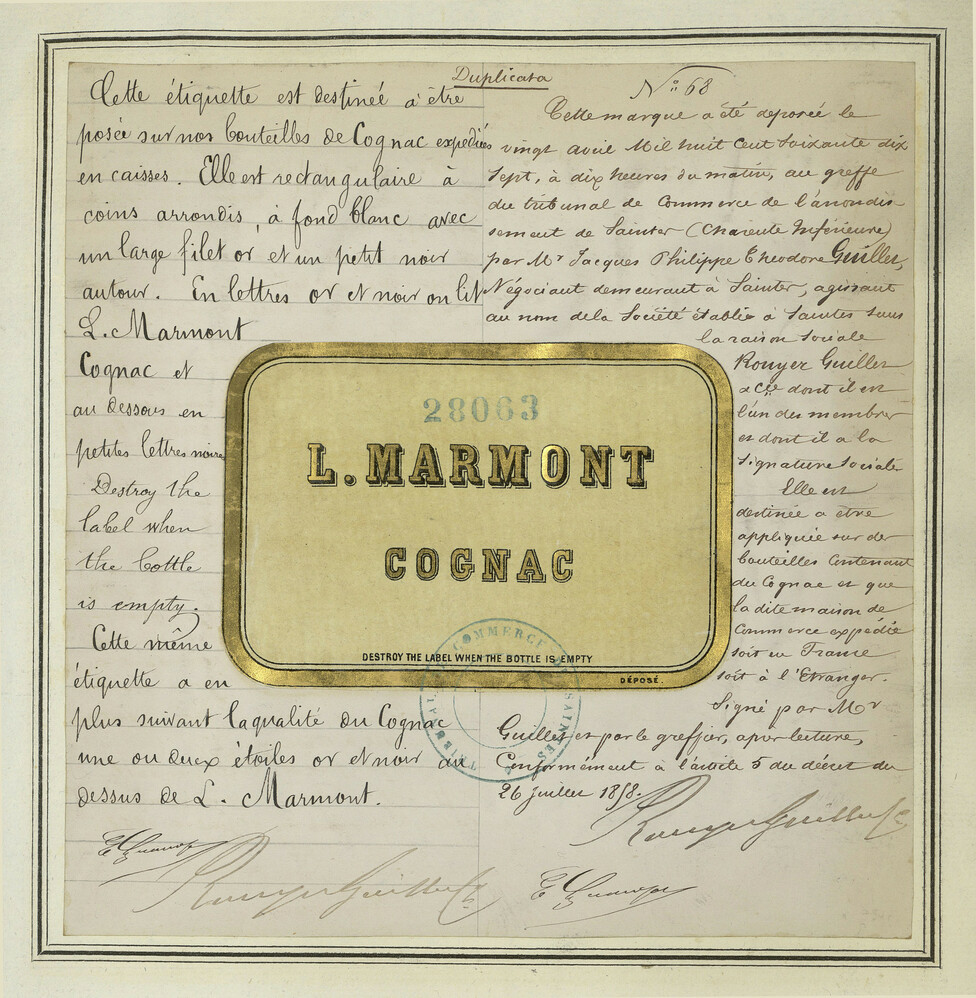 Duplicata
Cette étiquette est destinée à être
posée sur nos bouteilles de Cognac expediés
en caisses. Elle est rectangulaire à
coins arrondis, à fond blanc avec
un large filet or et un petit noir
autour. En lettres or et noir on lit
L. Marmont
Cognac et
au dessous en
petites lettres noires
Destroy the
label when
the bottle
is empty.
Cette même
étiquette a en
plus suivant la qualité du Cognac
une ou deux étoiles or et noir au
dessus de L. Marmont.
Rouyer Guillet & Cie
No 68
Cette marque a été deposée le
vingt avril Mil huit Cent Soixante dix
Sept, à dix heures du matin, au greffe
du tribunal de Commerce de l'arrondis-
sement de Saintes (Charente Inférieure)
par Mr Jacques Philippe Theodore Guillet,
Négociant demeurant à Saintes, agissant
au nom de la Société établie à Saintes sous
la raison Sociale
Rouyer Guillet
& Cie dont il est
l'un des membres
et dont il a la
Signature Sociale
Elle est
destinée a être
appliquée sur des
bouteilles Contenant
du Cognac et que
la dite maison de
Commerce expédie
soit en France
soit à l'Etranger.
Signé par Mr
Guillet et par le greffier, après lecture,
Conformément à l'article 5 du décret du
26 juillet 1858.
Rouyer Guillet & Cie
28063
L. MARMONT
COGNAC
DESTROY THE LABEL WHEN THE BOTTLE IS EMPTY
DÉPOSÉ.
TRIBUNAL DE COMMERCE DE SAINTES